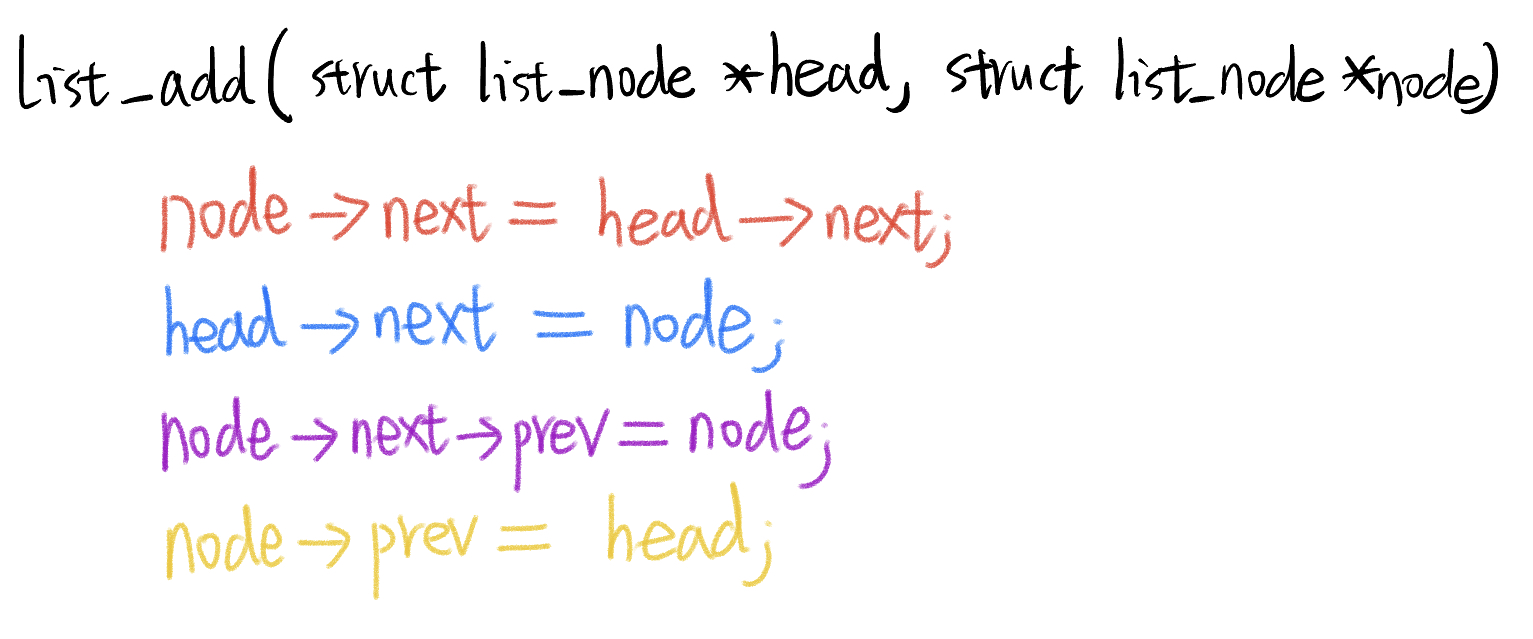 list_add( struct list_node *head, struct list_node *node)
node->next = head->next;
head->next = node;
node->next->prev = node;
node->prev = head;